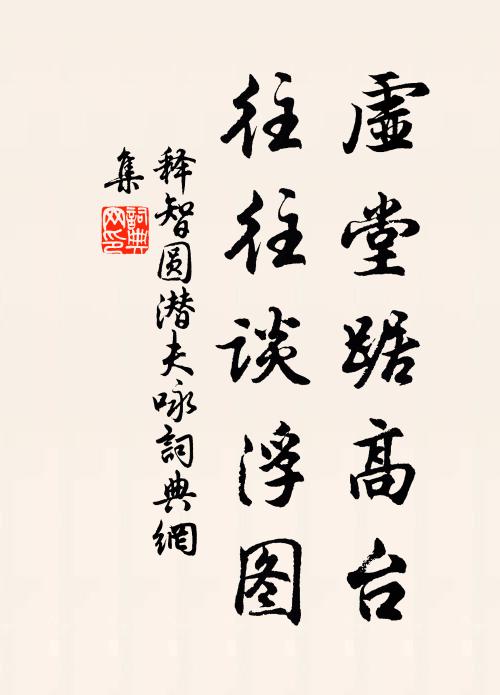 虛堂踞高台
往往谈浮图
释智圆潜夫咏詞典網
集
詞典网印